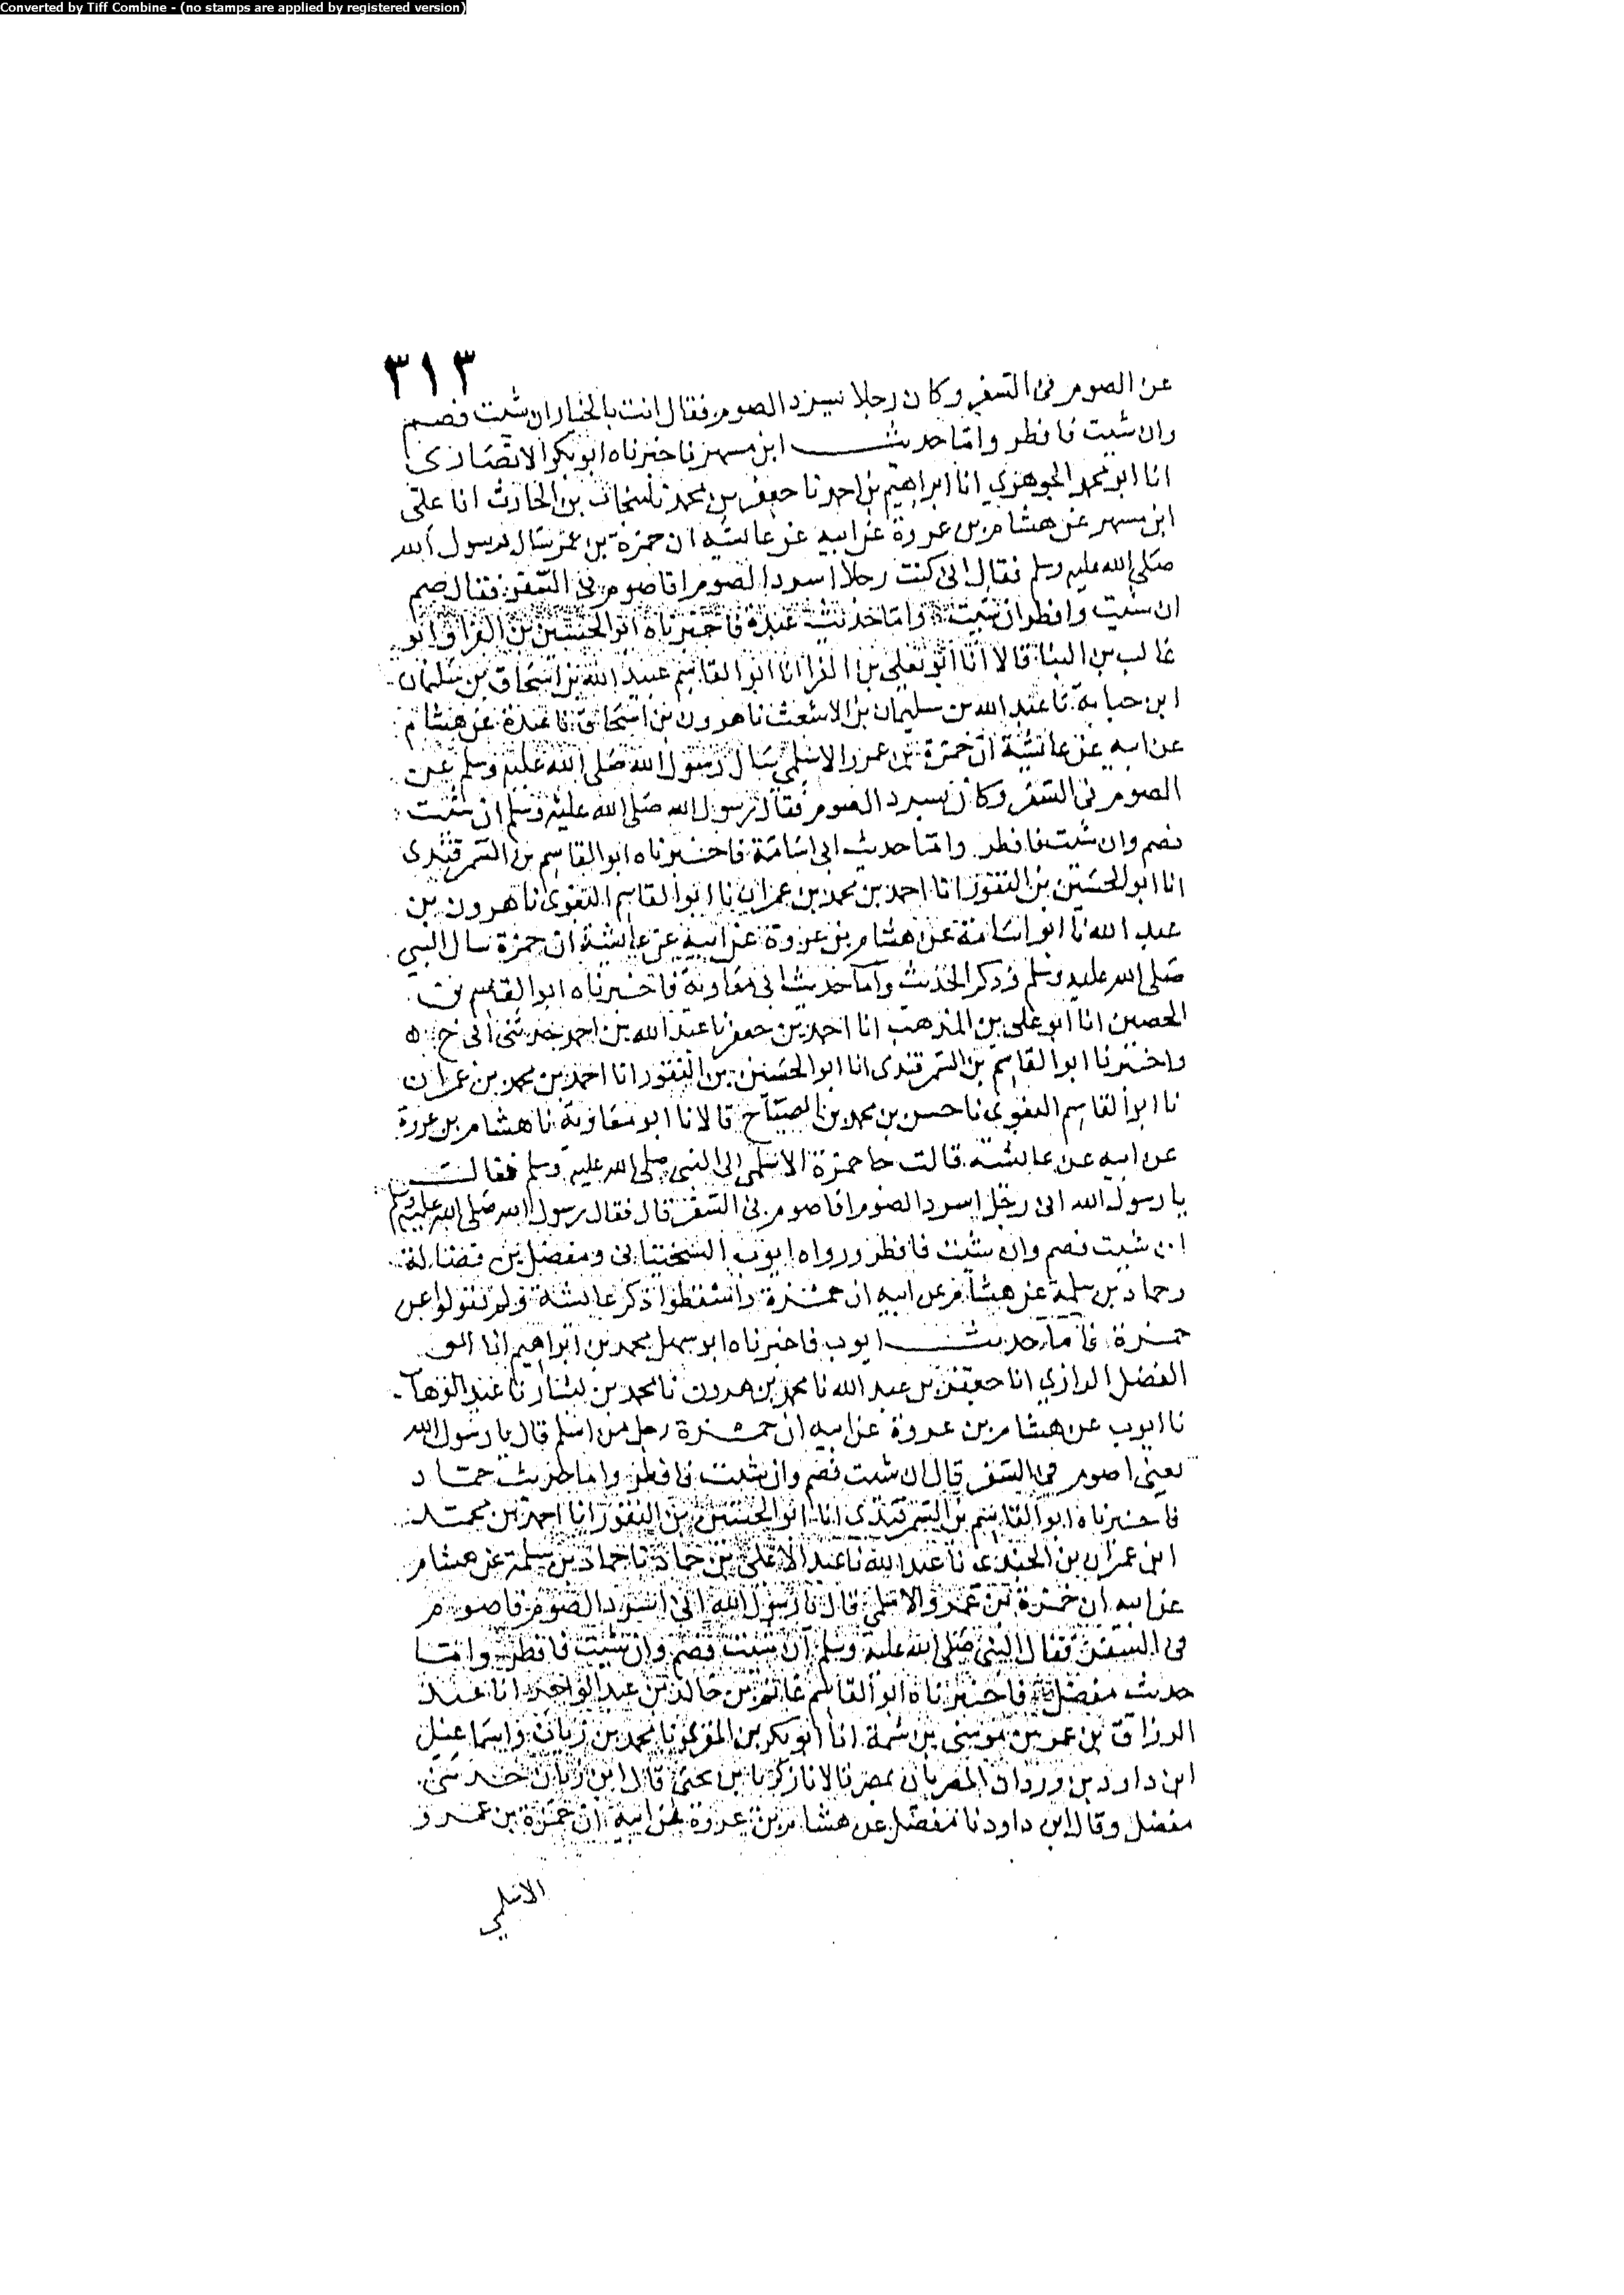 Converted by Tiff Combine - (no stamps are applied by registered version)
٣١٣
عن الصوم فى السفر وكان رجلا يسرد الصوم فقال انت بالخيار ان شيت فصم
وان شيت فافطر واما حديث ابن مسهر فاخبرناه ابو بكر الانصارى
انا ابو محمد الجوهري انا ابراهيم بن احمد نا جعفر بن محمد نا سنجاب بن الحارث انا على
ابن مسهر عن هشام بن عروة عن ابيه عن عائشه ان حمزة بن عمر سال رسول الله
صلى الله عليه وسلم فقال انى كنت رجلا اسرد الصوم افاصوم فى السفر فقال صم
ان شيت وافطر ان شيت واما حديث عبدة فاخبرناه ابو الحسين بن الفرا وابو
غالب بن البنا قالا انا ابو يعلى بن الفرا انا ابو القاسم عبيد الله بن اسحاق بن سليمان
ابن حبابة نا عبد الله بن سليمان بن الاشعث نا هرون بن اسحاق نا عبدة عن هشام
عن ابيه عن عائشة ان حمزة بن عمرو الاسلمى سال رسول الله صلى الله عليه وسلم عن
الصوم فى السفر وكان يسرد الصوم فقال رسول الله صلى الله عليه وسلم ان شئت
فصم وان شئت فافطر واما حديث ابى اسامة فاخبرناه ابو القاسم بن السمرقندى
انا ابو الحسين بن النقور انا احمد بن محمد بن عمران نا ابو القاسم البغوى نا هرون بن
عبد الله نا ابو اسامة عن هشام بن عروة عن ابيه عن عايشة ان حمزة سال النبي
صلى الله عليه وسلم فذكر الحديث واما حديث ابى معاوية فاخبرناه ابو القاسم بن
الحصين انا ابو على بن المذهب انا احمد بن جعفر نا عبد الله بن احمد حدثنى ابى ح
واخبرنا ابو القاسم بن السمرقندى انا ابو الحسين بن النقور انا احمد بن محمد بن عمران
نا ابو القاسم البغوى نا حسن بن محمد بن الصباح قالا نا ابو معاوية نا هشام بن عروة
عن ابيه عن عايشة قالت جا حمزة الاسلمى الى النبى صلى الله عليه وسلم فقالت
يا رسول الله انى رجل اسرد الصوم افاصوم فى السفر قال فقال رسول الله صلى الله عليه وسلم
ان شيت فصم وان شئت فافطر ورواه ايوب السختيانى ومفضل بن فضالة
وحماد بن سلمة عن هشام عن ابيه ان حمزة واسقطوا ذكر عائشة ولم يقولوا عن
حمزة فاما حديث ايوب فاخبرناه ابو سهل محمد بن ابراهيم انا ابو
الفضل الرازي انا جعفر بن عبد الله نا محمد بن هرون نا محمد بن بشار نا عبد الوهاب
نا ايوب عن هشام بن عروة عن ابيه ان حمزة رجل من اسلم قال يا رسول الله
يعنى اصوم فى السفر قال ان شيت فصم وان شئت فافطر واما حديث حماد
فاخبرناه ابو القاسم بن السمرقندى انا ابو الحسين بن النقور انا احمد بن محمد
ابن عمران بن الجندى نا عبد الله نا عبد الاعلى بن حماد نا حماد بن سلمة عن هشام
عن ابيه ان حمزة بن عمرو الاسلمى قال يا رسول الله انى اسرد الصوم فاصوم
فى السفر فقال النبى صلى الله عليه وسلم ان شئت فصم وان شئت فافطر واما
حديث مفضل فاخبرناه ابو القاسم غانم بن خالد بن عبد الواحد انا عبد
الرزاق بن عمر بن موسى بن شمة انا ابو بكر بن المقرى نا محمد بن زبان واسماعيل
ابن داود بن وردان المصريان بمصر قالا نا زكريا بن يحيى قال ابن زبان حدثنى
مفضل وقال ابن داود نا مفضل عن هشام بن عروة عن ابيه ان حمزة بن عمرو
الاسلمي